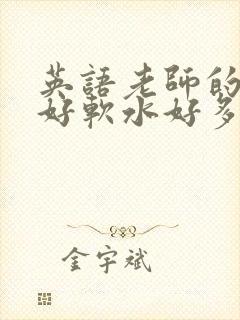 英語老師的
好軟水好多
金宇斌